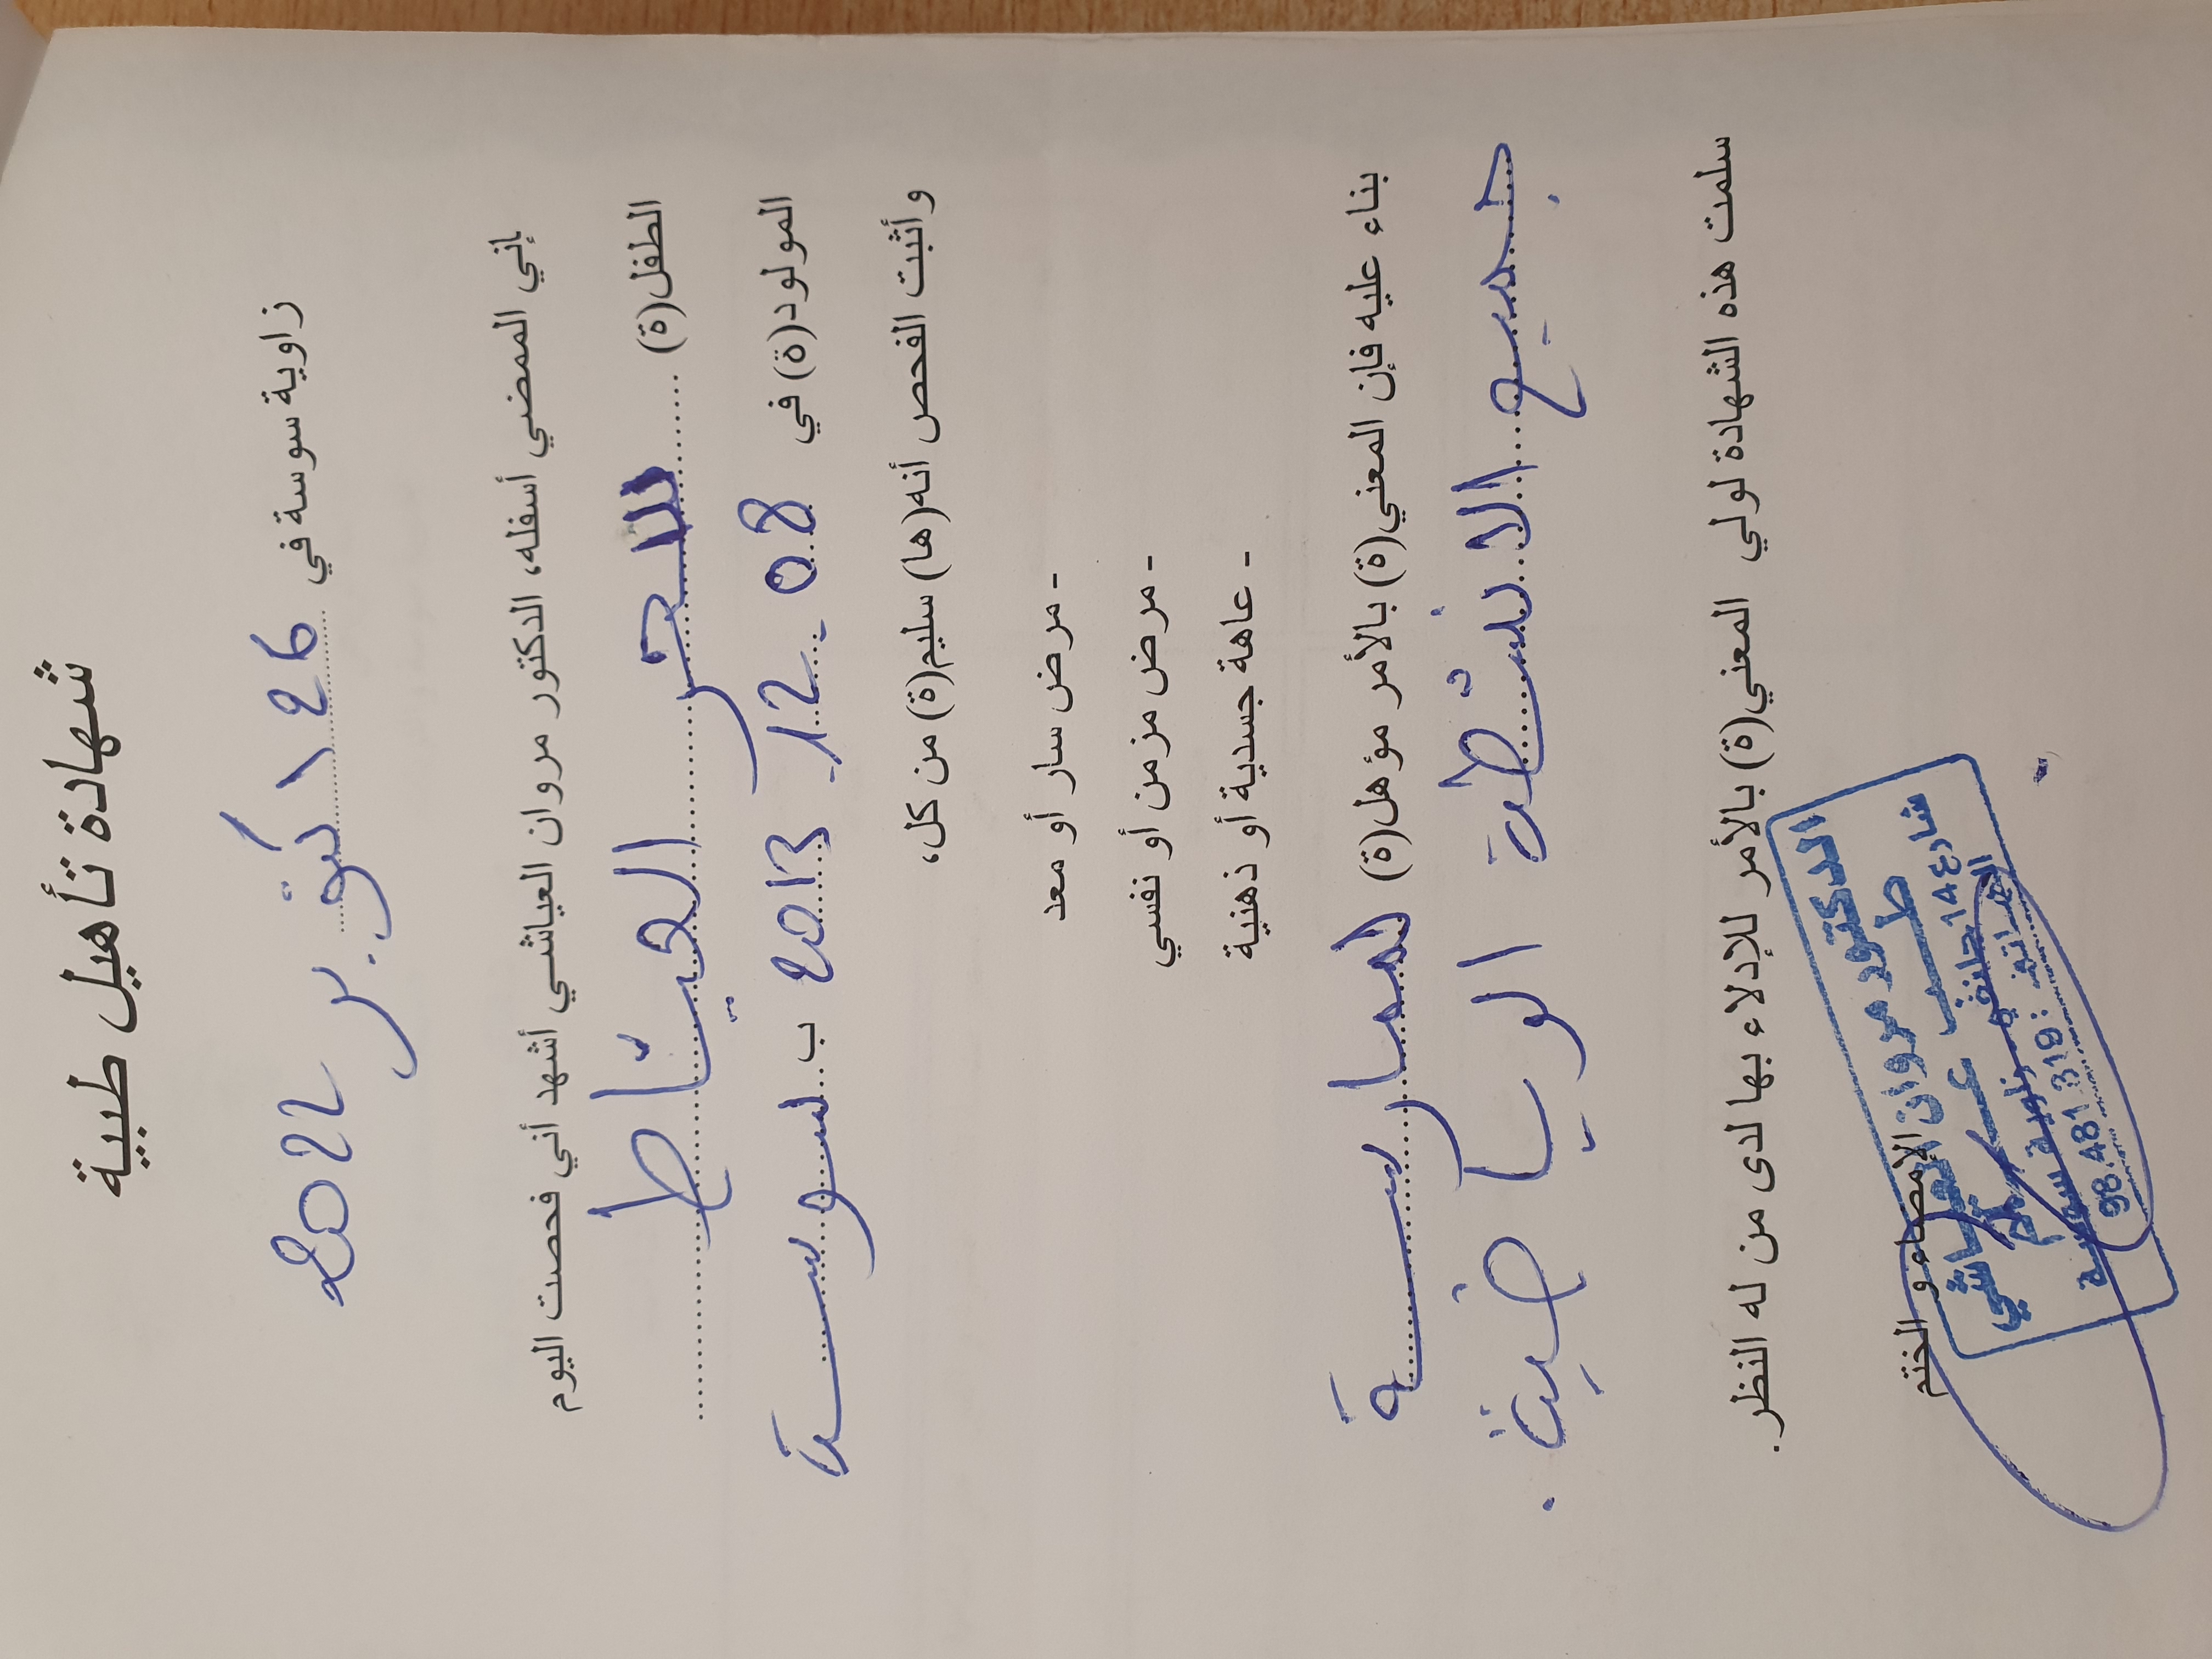 شهادة تأهيل طبية
زاوية سوسة في 26 اكتوبر 2022
إني الممضي أسفله، الدكتور مروان العياشي أشهد أني فحصت اليوم
الطفل(ة)
المولود(ة) في 08. 12. 2013 ب سوسة
و أثبت الفحص أنه(ها) سليم(ة) من كل،
- مرض سار أو معد
- مرض مزمن أو نفسي
- عاهة جسدية أو ذهنية
بناء عليه فإن المعني(ة) بالأمر مؤهل(ة) لممارسة
جميع الانشطة الرياضية.
سلمت هذه الشهادة لولي المعني(ة) بالأمر للإدلاء بها لدى من له النظر.
الإمضاء و الختم
الدكتور مروان العياشي
طب عام
شارع 14 جانفي زاوية سوسة
الهاتف: 98.481.318